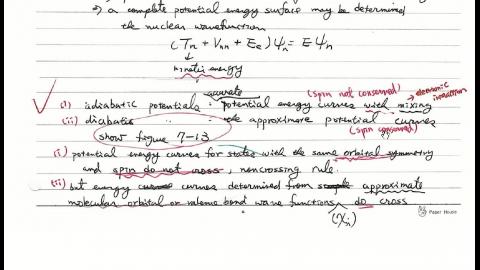 ⇒ a complete potential energy surface may be determined
the nuclear wavefunction
(Tn + Vnn + Ee) Ψn = E Ψn
kinetic energy
accurate (spin not conserved) → electronic interaction
(i) adiabatic potentials : potential energy curves with mixing
(ii) diabatic " : the approximate potential curves
(spin conserved)
show figure 7-13
(i) potential energy curves for states with the same orbital symmetry
and spin do not cross , noncrossing rule.
(ii) but energy curves determined from approximate
molecular orbital or valence bond wave functions do cross
Paper House